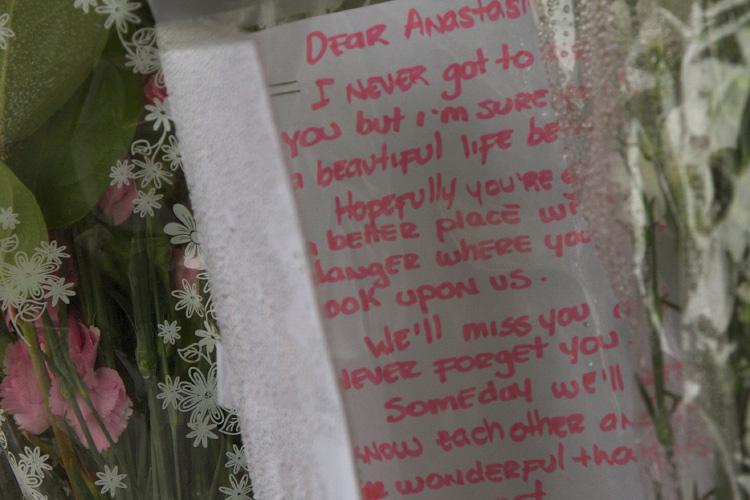 DEAR ANASTASI
I NEVER got to
YOU but I'M SURE
a beautiful life be
Hopefully you're
better place wi
danger where you
look upon us.
We'll miss you
NEVER FORGET YOU
SOMEDAY we'll
KNOW each other an
wonderful tha